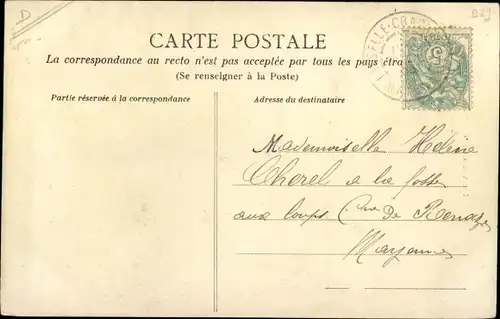 D
CARTE POSTALE
La correspondance au recto n'est pas acceptée par tous les pays étra
(Se renseigner à la Poste)
Partie réservée à la correspondance
Adresse du destinataire
Mademoiselle Hélène
Cherel a la fosse
aux loups Cne De Renazé
Mayenne